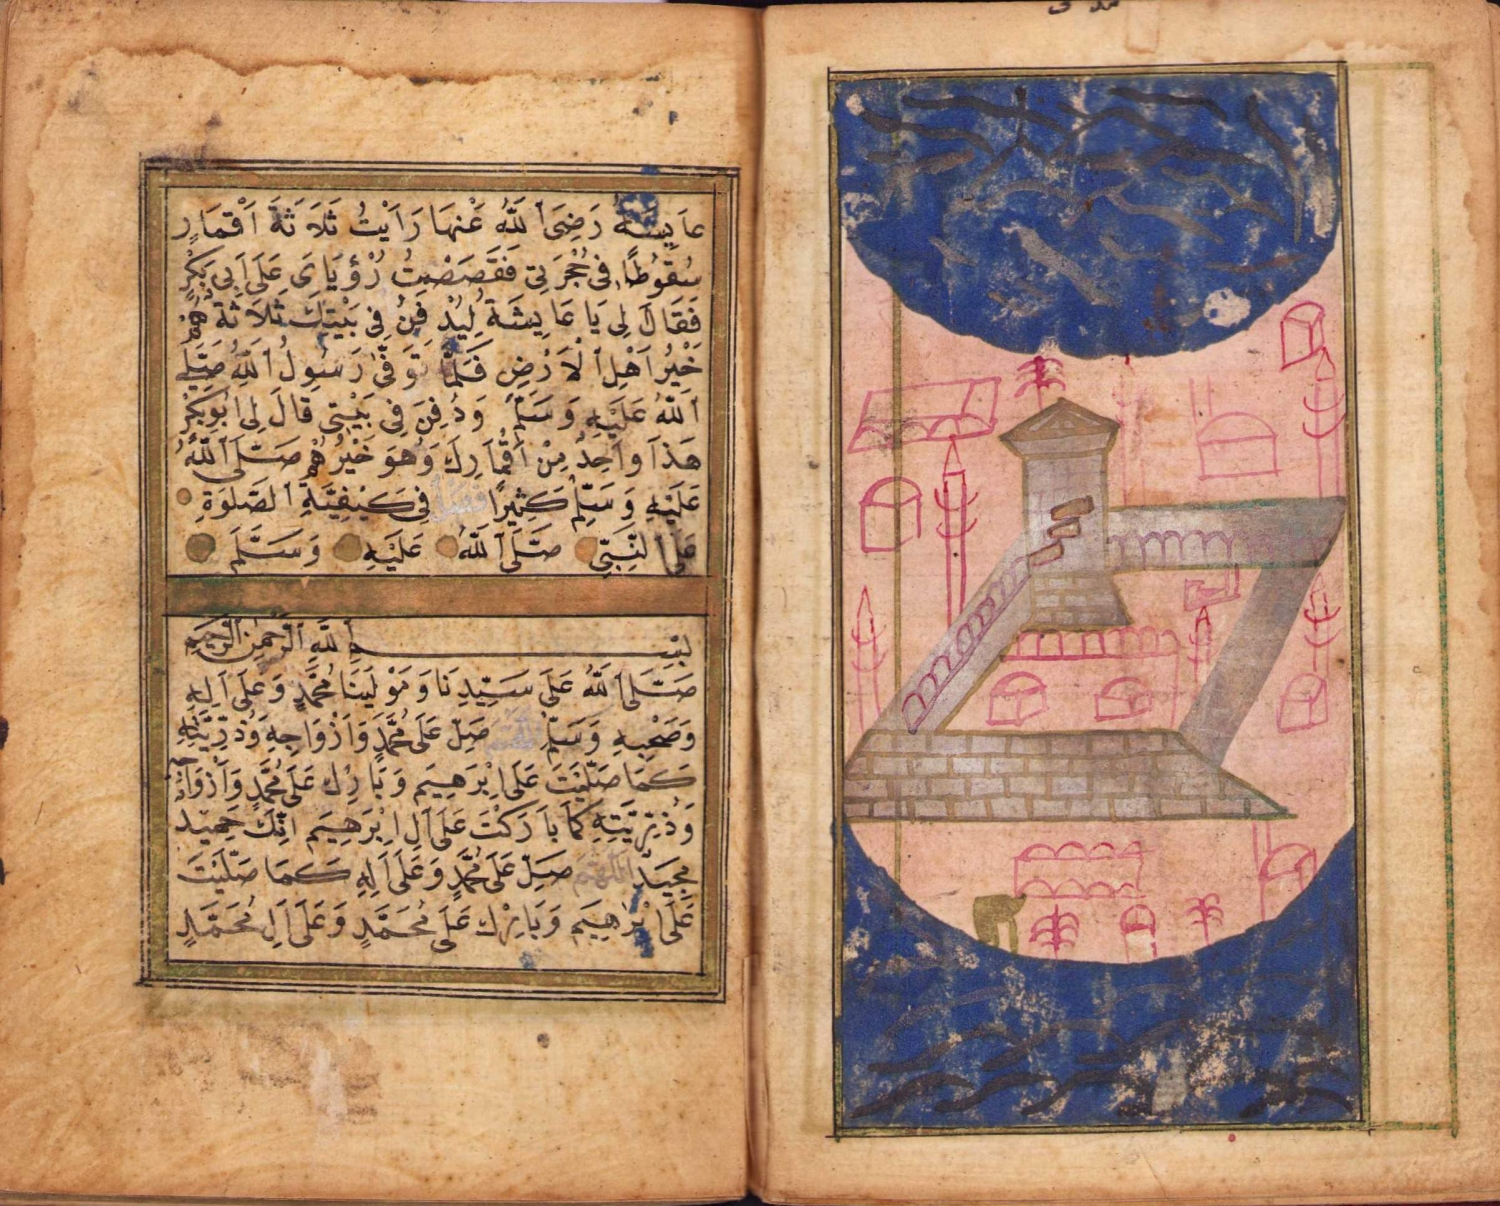 عَايِشَةُ رَضِىَ ٱللّٰهُ عَنْهَا رَاَيْتُ ثَلَاثَةَ اَقْمَارٍ
سُقُوطًا فِى حُجْرَتِى فَقَصَصْتُ رُؤْيَاىَ عَلَى اَبِى بَكْرٍ
فَقَالَ لِى يَا عَايِشَةُ لِيُدْفَنَنَّ فِى بَيْتِكِ ثَلَاثَةٌ هُمْ
خَيْرُ اَهْلِ ٱلْاَرْضِ فَلَمَّا تُوَفِّىَ رَسُولُ ٱللّٰهِ صَلَّى
ٱللّٰهُ عَلَيْهِ وَسَلَّمَ وَدُفِنَ فِى بَيْتِى قَالَ لِى اَبُو بَكْرٍ
هَذَا وَاحِدٌ مِنْ اَقْمَارِكِ وَهُوَ خَيْرُهُمْ صَلَّى ٱللّٰهُ
عَلَيْهِ وَسَلَّمَ كَثِيرًا فِى كَيْفِيَّةِ ٱلصَّلٰوةِ
عَلَى ٱلنَّبِىِّ صَلَّى ٱللّٰهُ عَلَيْهِ وَسَلَّمَ
بِسْمِ ٱللّٰهِ ٱلرَّحْمٰنِ ٱلرَّحِيمِ
صَلَّى ٱللّٰهُ عَلَى سَيِّدِنَا وَمَوْلَينَا مُحَمَّدٍ وَعَلَى اٰلِهِ
وَصَحْبِهِ وَسَلَّمَ اَللّٰهُمَّ صَلِّ عَلَى مُحَمَّدٍ وَاَزْوَاجِهِ وَذُرِّيَّتِهِ
كَمَا صَلَّيْتَ عَلَى اِبْرَهِيمَ وَبَارِكْ عَلَى مُحَمَّدٍ وَاَزْوَاجِهِ
وَذُرِّيَّتِهِ كَمَا بَارَكْتَ عَلَى اٰلِ اِبْرَهِيمَ اِنَّكَ حَمِيدٌ
مَجِيدٌ اَللّٰهُمَّ صَلِّ عَلَى مُحَمَّدٍ وَعَلَى اٰلِهِ كَمَا صَلَّيْتَ
عَلَى اِبْرَهِيمَ وَبَارِكْ عَلَى مُحَمَّدٍ وَعَلَى اٰلِ مُحَمَّدٍ